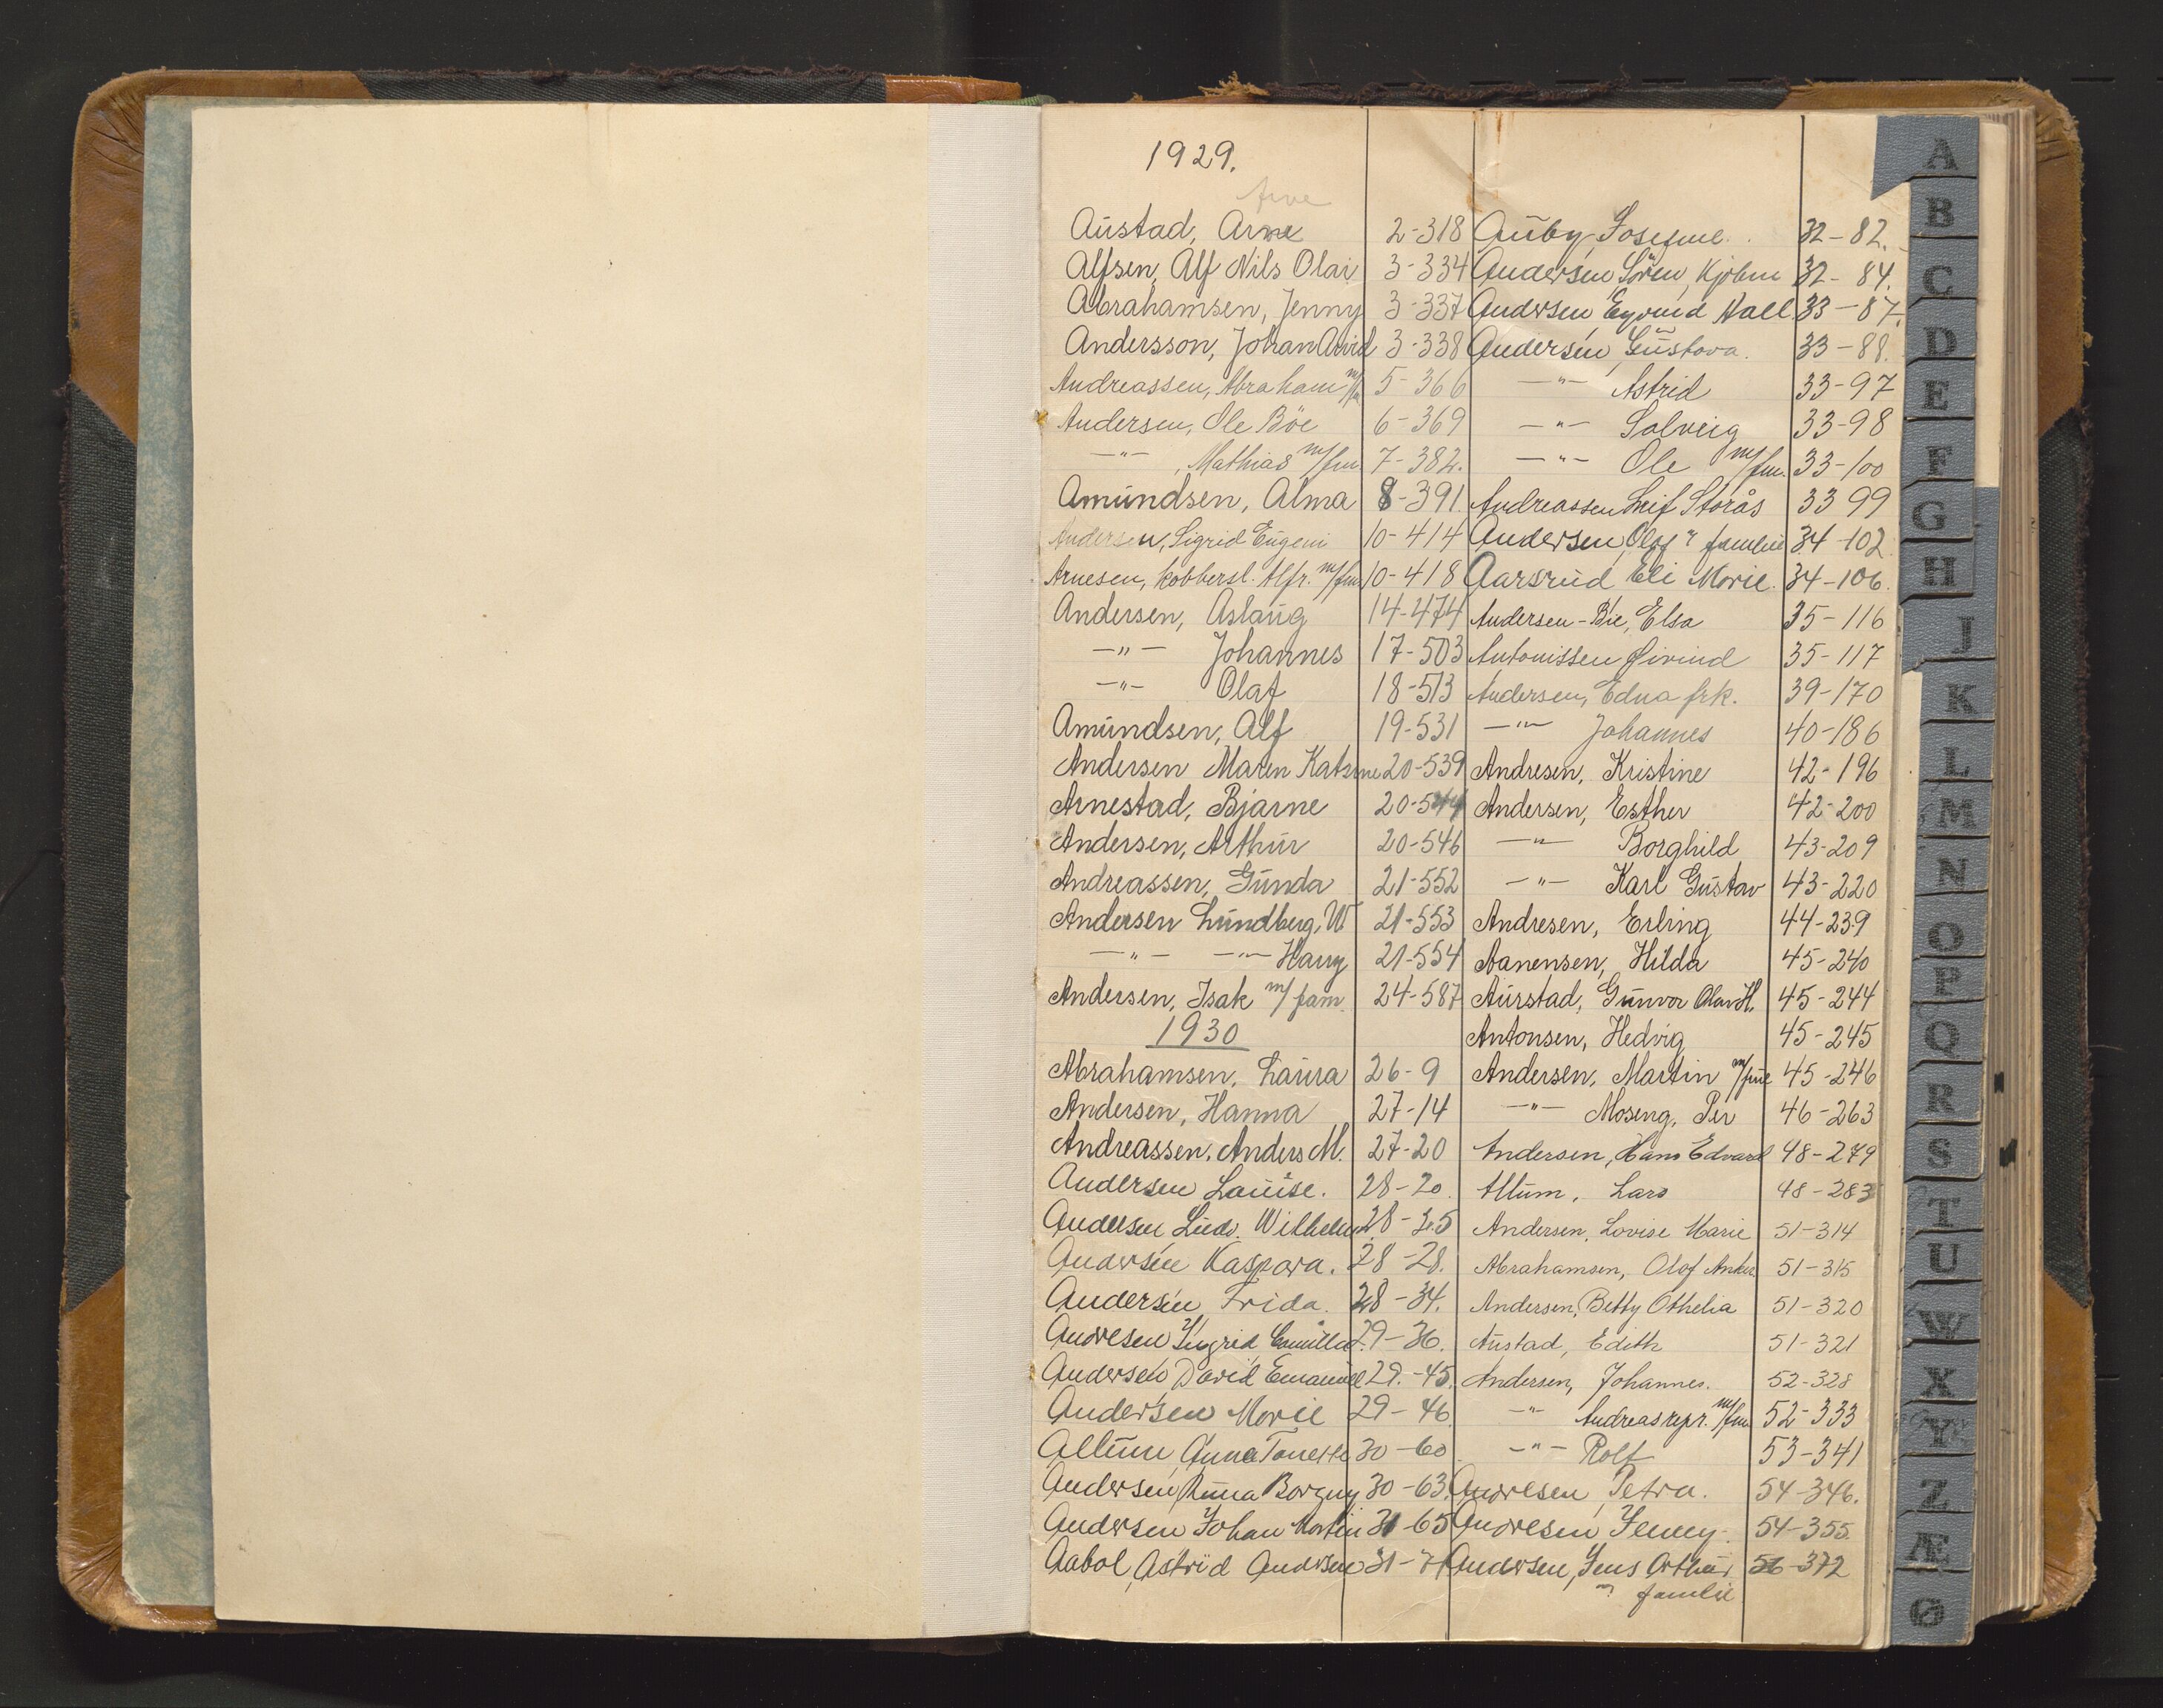 1929.
Austad, Arne 2-318
Alfsen, Alf Nils Olai 3-334
Abrahamsen, Jenny 3-337
Andersson, Johan Arvid 3-338
Andreassen, Abraham 5-366
Andersen, Ole Böe 6-369
—"— , Mathias m/fm. 7-382.
Amundsen, Alma 8-391
Andersen, Sigrid Eugeni 10-414
Arnesen, kobbersl. Alfr. m/fm 10-418
Andersen, Aslaug 14-474
—"— Johannes 17-503
—"— Olaf 18-513
Amundsen, Alf 19-531
Andersen Maren Katrine 20-539
Arnestad, Bjarne 20-544
Andersen, Arthur 20-546
Andreassen, Gunda 21-552
Andersen Lundberg, W 21-553
—"— —"— Harry 21-554
Andersen, Isak m/fam. 24-587
1930
Abrahamsen, Laura 26-9
Andersen, Hanna 27-14
Andreassen, Anders M. 27-20
Andersen Louise. 28-20.
Andersen Wilhelm 28-25
Andersen Kaspara. 28-28.
Andersen Frida. 28-34.
Andresen Ingrid Camilla 29-36.
Andersen David Emanuel 29.-45.
Andersen Marie 29-46.
Allum, Anna Tonette 30-60
Andersen, Borgny 30-63.
Andersen Johan Martin 31-65
Aabol, Astrid Andersen 31-71
Auby, Josefine. 32-82.
Andersen Sören, Kjöbm 32-84.
Andersen Eyvind Hall 33-87.
Andersen, Gustava. 33-88.
—"— Astrid 33-97
—"— Solveig 33-98
—"— Ole m/fm. 33-100
Andreassen Leif Storås 33 99
Andersen, Olaf familie 34-102.
Aarsrud Eli Marie. 34-106.
Andersen-Bie, Elsa 35-116
Antonissen Øivind 35-117
Andersen, Edna frk. 39-170
—"— Johannes 40-186
Andresen, Kristine 42-196
Andersen, Esther 42-200
—"— Borghild 43-209
—"— Karl Gustav 43-220
Andresen, Erling 44-239
Aanensen, Hilda 45-240
Aurstad, Gunvor Olav H. 45-244
Antonsen, Hedvig 45-245
Andersen, Martin m/frue 45-246
—"— Moseng, Per 46-263
Andersen, Hans Edvard 48-279
Allum, Lars 48-283
Andersen, Lovise Marie 51-314
Abrahamsen, Olaf Anker 51-315
Andersen, Betty Othelia 51-320
Austad, Edith 51-321
Andersen, Johannes. 52-328
—"— Andreas repr. m/fm. 52-333
—"— Rolf 53-341
Andresen, Petra. 54-346.
Andresen Jenny. 54-355.
Andersen, Jens Arthur 56-372
familie
A
B
C
D
E
F
G
H
J
K
L
M
N
O
P
Q
R
S
T
U
W
X
Y
Z
Æ
Ø